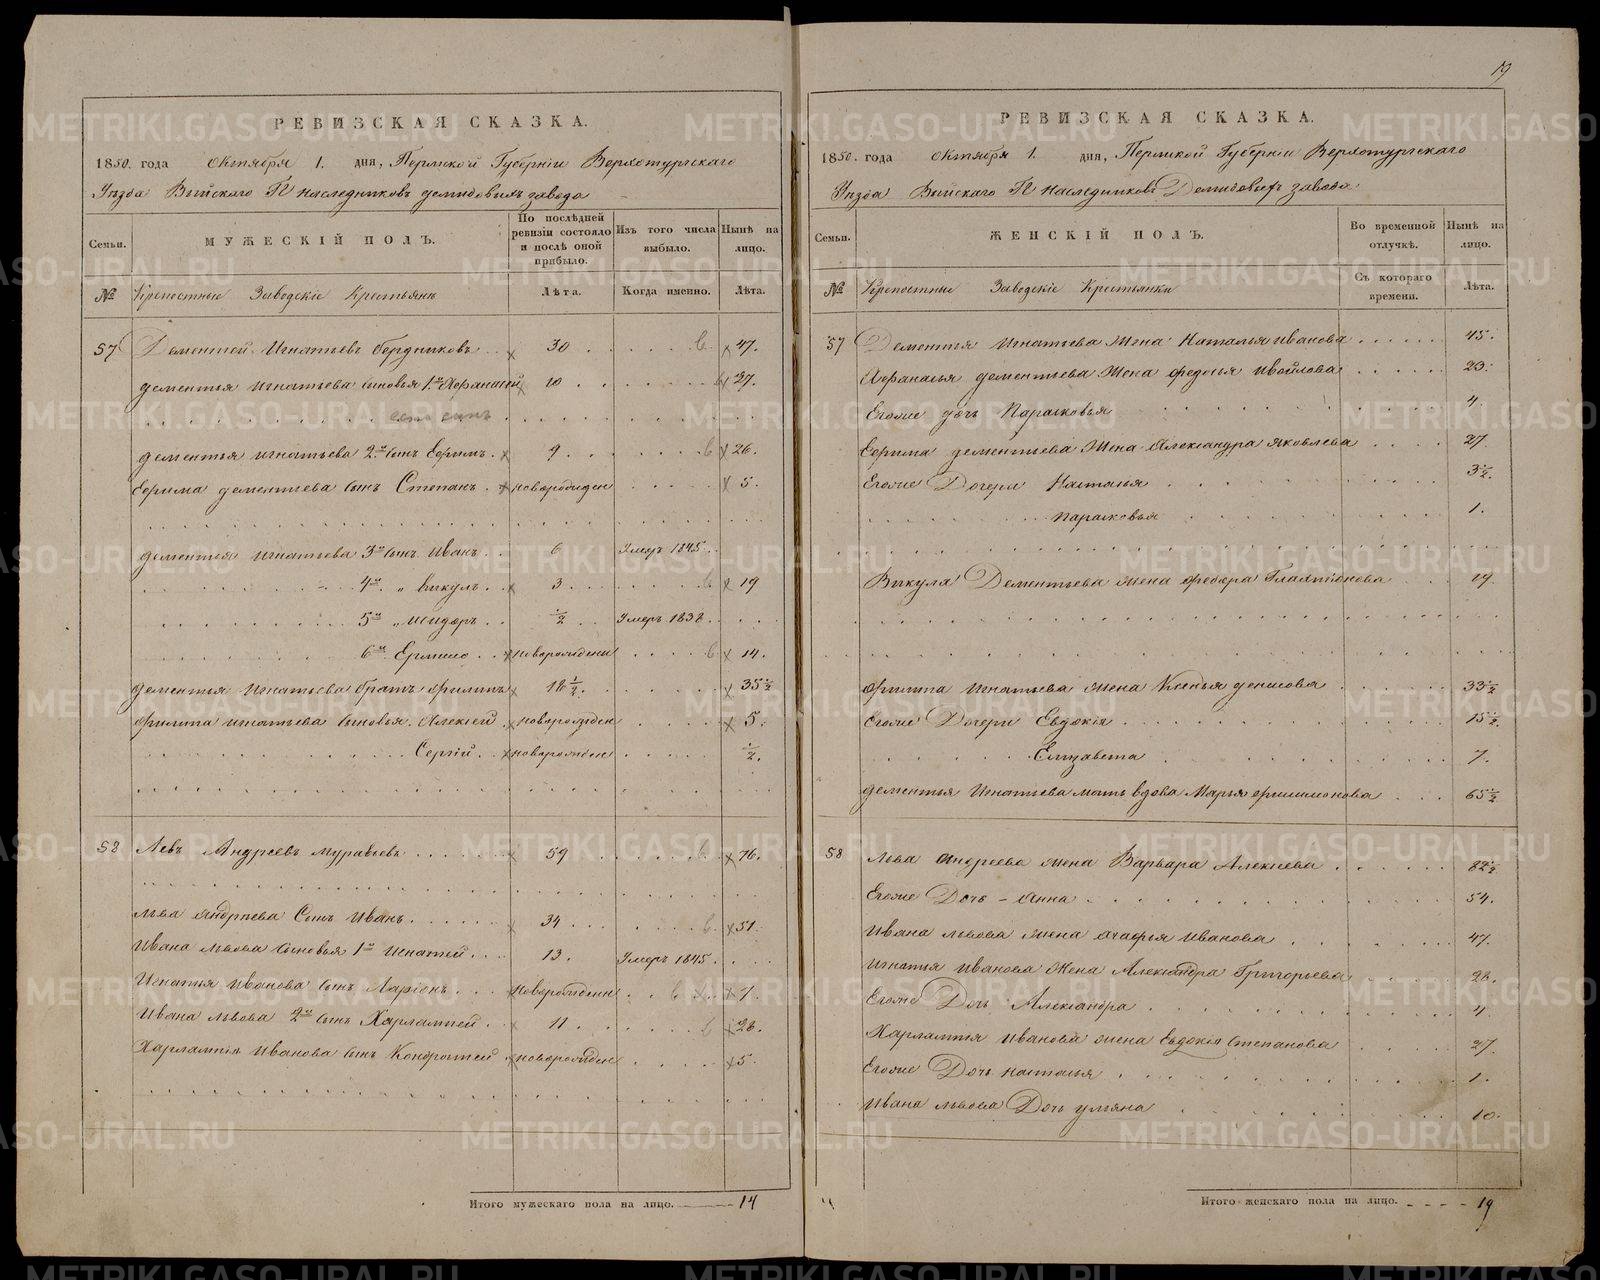 19
РЕВИЗСКАЯ СКАЗКА.
1850. года Октября 1. дня, Пермской Губернiи Верхотурскаго
Уезда Выйскаго Гг наследниковъ демидовыхъ завода
Семьи.
МУЖЕСКIЙ ПОЛЪ.
По послѣдней ревизiи состояло и послѣ оной прибыло.
Изъ того числа выбыло.
Нынѣ на лицо.
№ Крепостные Заводскiе Крестьяне Лѣта. Когда именно. Лѣта.
57 Дементей Игнатьевъ Бердниковъ 30 47.
дементья игнатьева сыновья 1й Афанасей 10 27.
дементья игнатьева 2й сынъ Ефимъ 9 26.
Ефима дементьева сынъ Степанъ новорожден 5
дементья игнатьева 3й сынъ Иванъ 6 Умеръ 1845
4й „ викулъ 3 19
5й „ ½ Умеръ 1838
6й новорожден 14
дементья игнатьева братъ филипъ 18½ 35½
филипа игнатьева сыновья Алексей новорожден 5
Сергiй новорожден ½
58 Левъ Андреевъ муравьевъ 59 76.
льва андреева Сынъ Иванъ 34 51
Ивана львова сыновья 1й Игнатей 13. Умеръ 1845
Игнатья иванова сынъ Ларiонъ новорожден 7
Ивана львова 2й сынъ Харлампей 11 28.
Харлампiя иванова сынъ Кондратей новорожден 5
Итого мужескаго пола на лицо. 14
РЕВИЗСКАЯ СКАЗКА.
1850. года октября 1. дня, Пермской Губернiи Верхотурскаго
Уезда Выйскаго Гг наследниковъ Демидовыхъ завода
Семьи.
ЖЕНСКIЙ ПОЛЪ.
Во временной отлучкѣ.
Нынѣ на лицо.
№ Крепостные Заводскiе Крестьянки Съ котораго времени. Лѣта.
57 Дементья игнатьева жена Наталья иванова 45.
Афанасья дементьева жена федосья 23.
Егоже дочь Парасковья 4
Ефима дементьева жена Александра яковлева 27
Егоже Дочери Наталья 3½
парасковья 1.
Викула Дементьева жена федора 19
филипа игнатьева жена Ксенья денисова 33½
Егоже Дочери Евдокiя 15½
Елизавета 7.
дементья игнатьева мать вдова Марья филимонова 65½
58 Льва андреева жена Варвара Алексеева 82½
Егоже Дочь анна 54.
Ивана львова жена агафья иванова 47.
Игнатья Иванова жена Александра Григорьева 28.
Егоже Дочь Александра 4
Харлампiя иванова жена Евдокiя степанова 27.
Егоже Дочь наталья 1.
Ивана львова Дочь ульяна 10.
Итого женскаго пола на лицо. 19
METRIKI.GASO-URAL.RU